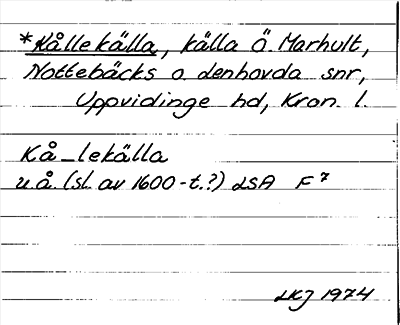 *Kållekälla, källa Ö. Marhult,
Nottebäcks o. Lenhovda snr,
Uppvidinge hd, Kron. l.
Kå_lekälla
u.å. (sl. av 1600-t.?) LSA F 7
LKJ 1974